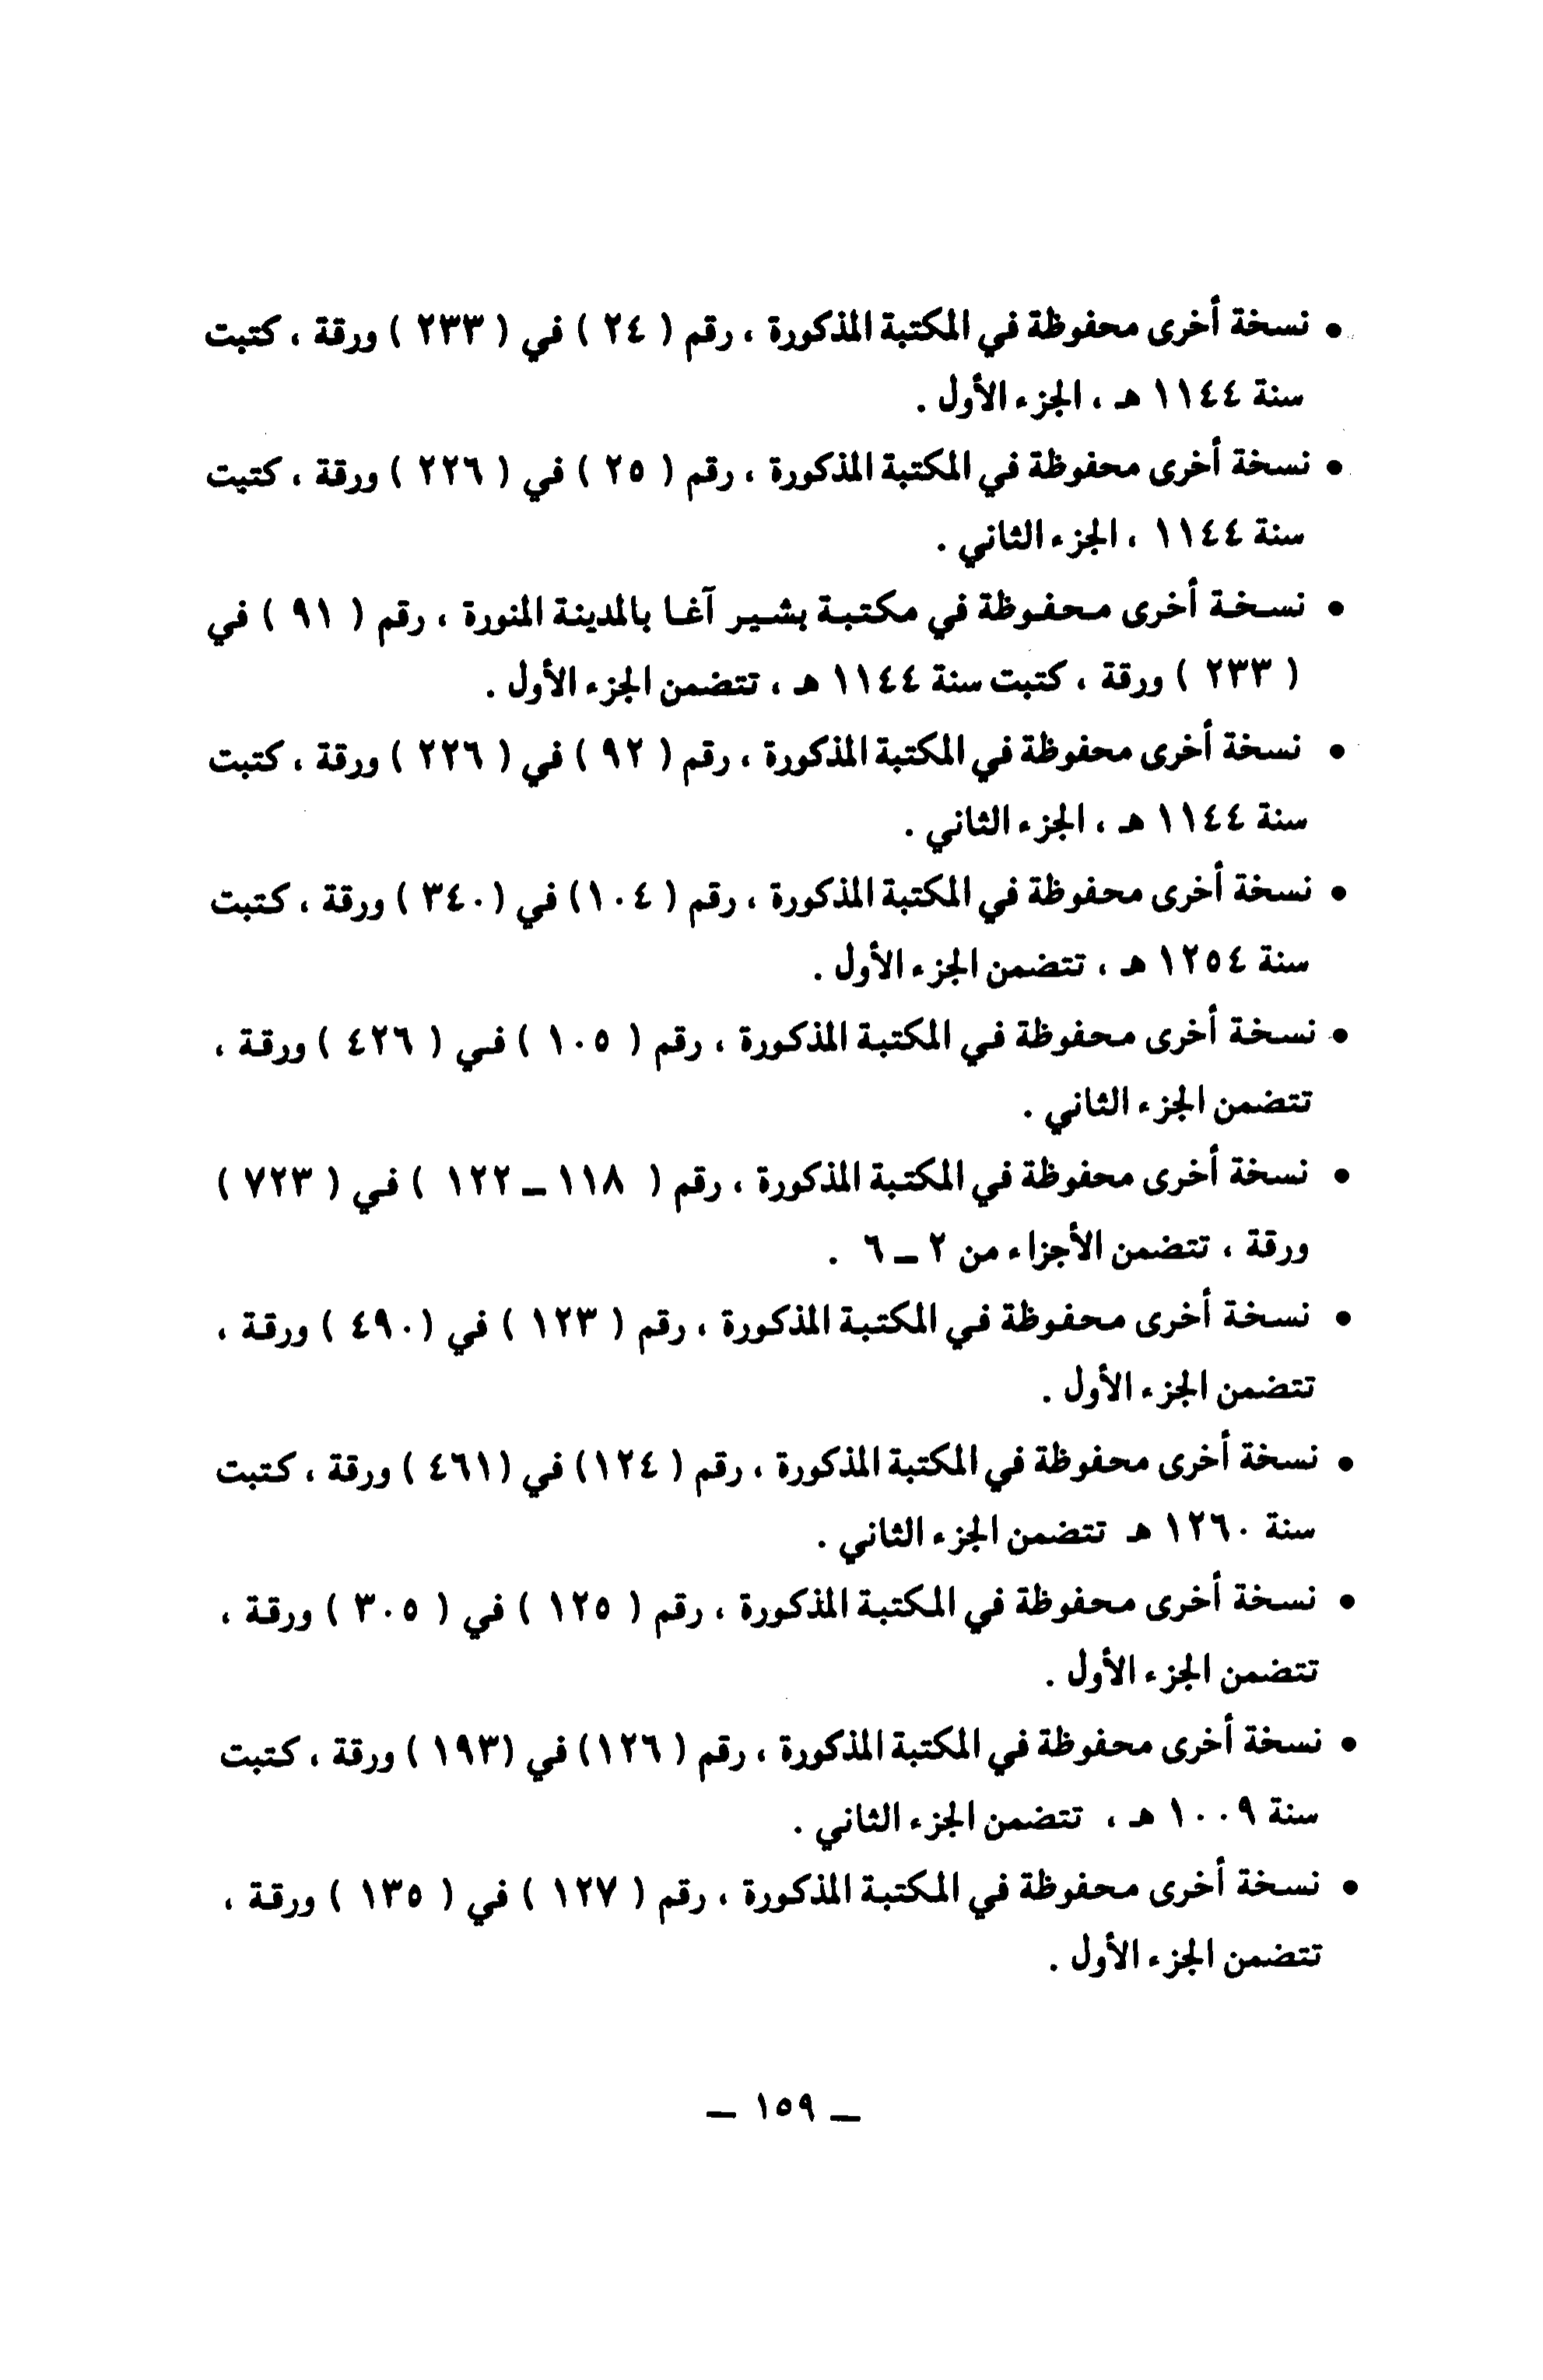 • نسخة أخرى محفوظة في المكتبة المذكورة ، رقم ( ٢٤ ) في ( ٢٣٣ ) ورقة ، كتبت
سنة ١١٤٤ هـ ، الجزء الأول .
• نسخة أخرى محفوظة في المكتبة المذكورة ، رقم ( ٢٥ ) في ( ٢٢٦ ) ورقة ، كتبت
سنة ١١٤٤ ، الجزء الثاني .
• نسخة أخرى محفوظة في مكتبة بشير آغا بالمدينة المنورة ، رقم ( ٩١ ) في
( ٢٣٣ ) ورقة ، كتبت سنة ١١٤٤ هـ ، تتضمن الجزء الأول .
• نسخة أخرى محفوظة في المكتبة المذكورة ، رقم ( ٩٢ ) في ( ٢٢٦ ) ورقة ، كتبت
سنة ١١٤٤ هـ ، الجزء الثاني .
• نسخة أخرى محفوظة في المكتبة المذكورة ، رقم ( ١٠٤) في (٣٤٠ ) ورقة ، كتبت
سنة ١٢٥٤ هـ ، تتضمن الجزء الأول .
• نسخة أخرى محفوظة في المكتبة المذكورة ، رقم ( ١٠٥ ) في ( ٤٢٦ ) ورقة ،
تتضمن الجزء الثاني .
• نسخة أخرى محفوظة في المكتبة المذكورة ، رقم ( ١١٨ ـ ١٢٢ ) في ( ٧٢٣ )
ورقة ، تتضمن الأجزاء من ٢ ـ ٦ .
• نسخة أخرى محفوظة في المكتبة المذكورة ، رقم ( ١٢٣ ) في (٤٩٠ ) ورقة ،
تتضمن الجزء الأول .
• نسخة أخرى محفوظة في المكتبة المذكورة ، رقم ( ١٢٤) في (٤٦١ ) ورقة ، كتبت
سنة ١٢٦٠ هـ تتضمن الجزء الثاني .
• نسخة أخرى محفوظة في المكتبة المذكورة ، رقم ( ١٢٥ ) في ( ٣٠٥ ) ورقة ،
تتضمن الجزء الأول .
• نسخة أخرى محفوظة في المكتبة المذكورة ، رقم ( ١٢٦) في (١٩٣ ) ورقة ، كتبت
سنة ١٠٠٩ هـ ، تتضمن الجزء الثاني .
• نسخة أخرى محفوظة في المكتبة المذكورة ، رقم ( ١٢٧ ) في ( ١٣٥ ) ورقة ،
تتضمن الجزء الأول .
ـ ١٥٩ ـ